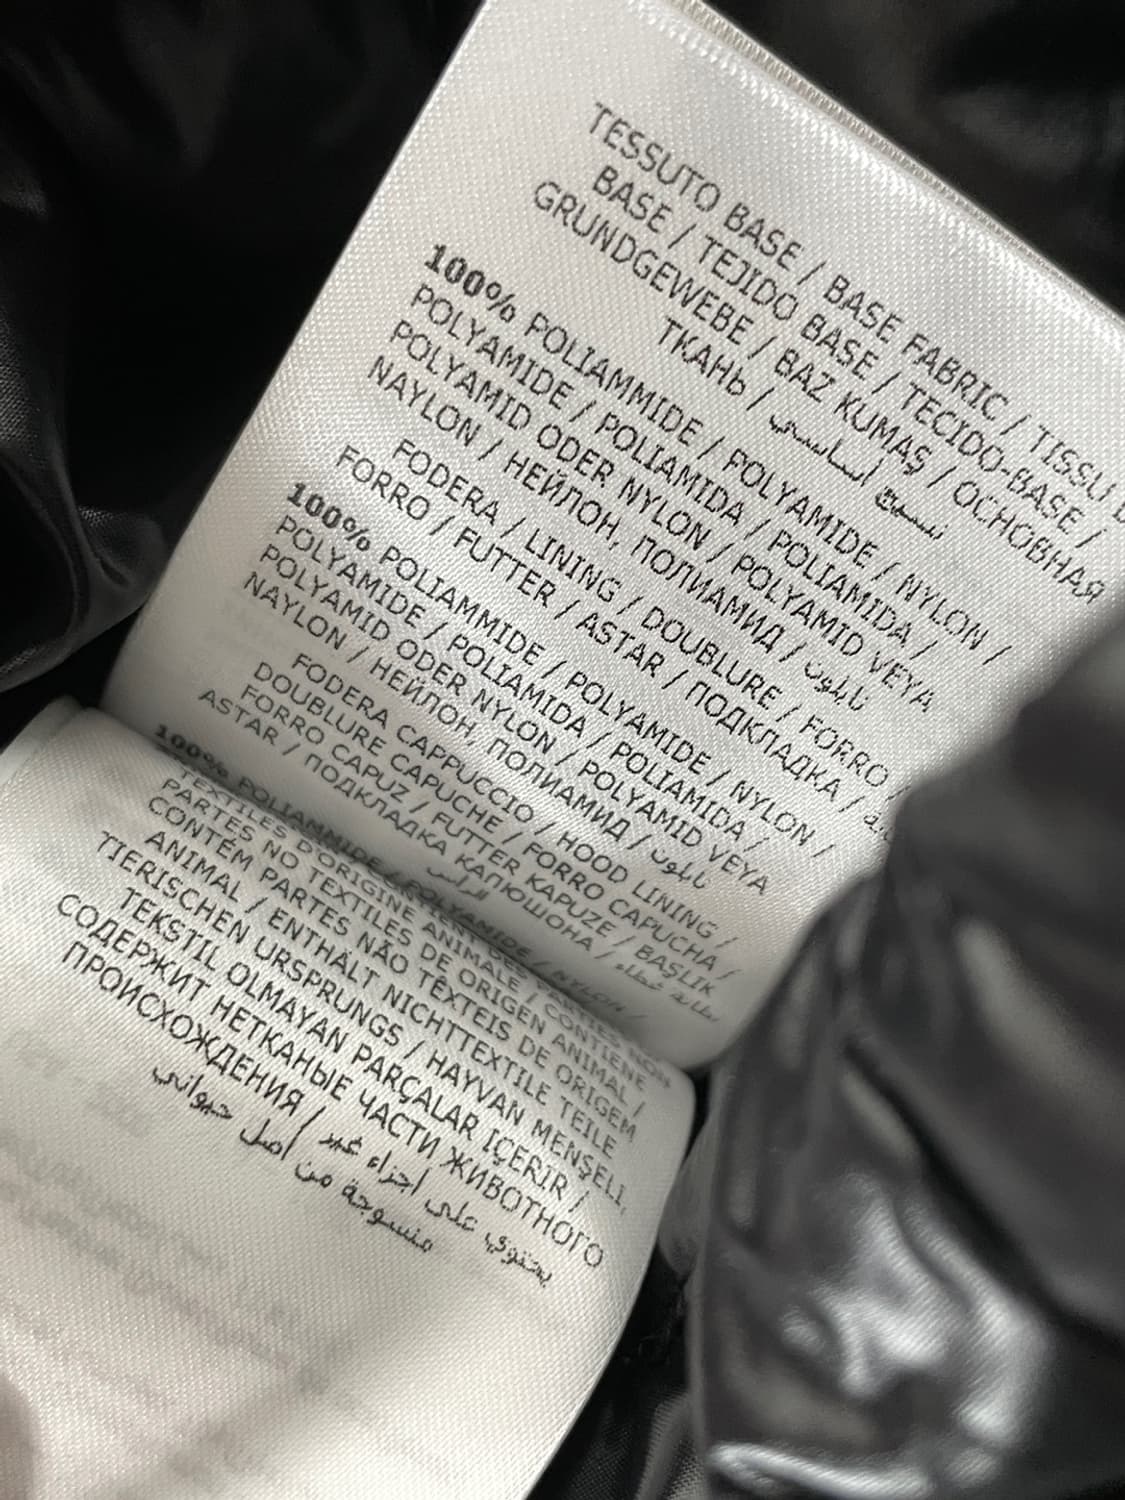 TESSUTO BASE / BASE FABRIC / TISSU
BASE / TEJIDO BASE / TECIDO-BASE /
GRUNDGEWEBE / BAZ KUMAŞ / ОСНОВНАЯ
ТКАНЬ / نسيج أساسي
100% POLIAMMIDE / POLYAMIDE / NYLON /
POLYAMIDE / POLIAMIDA / POLIAMIDA /
POLYAMID ODER NYLON / POLYAMID VEYA
NAYLON / НЕЙЛОН, ПОЛИАМИД / نايلون
FODERA / LINING / DOUBLURE / FORRO /
FORRO / FUTTER / ASTAR / ПОДКЛАДКА /
100% POLIAMMIDE / POLYAMIDE / NYLON /
POLYAMIDE / POLIAMIDA / POLIAMIDA /
POLYAMID ODER NYLON / POLYAMID VEYA
NAYLON / НЕЙЛОН, ПОЛИАМИД / نايلون
FODERA CAPPUCCIO / HOOD LINING /
DOUBLURE CAPUCHE / FORRO CAPUCHA /
FORRO CAPUZ / FUTTER KAPUZE / BAŞLIK
ASTAR / ПОДКЛАДКА КАПЮШОНА / بطانة غطاء
الرأس
100% POLIAMMIDE / POLYAMIDE / NYLON /
TEXTILES D'ORIGINE ANIMALE / CONTIENE
PARTES NO TEXTILES DE ORIGEN ANIMAL /
CONTÉM PARTES NÃO TÊXTEIS DE ORIGEM
ANIMAL / ENTHÄLT NICHTTEXTILE TEILE
TIERISCHEN URSPRUNGS / HAYVAN MENŞELİ,
TEKSTIL OLMAYAN PARÇALAR IÇERIR /
СОДЕРЖИТ НЕТКАНЫЕ ЧАСТИ ЖИВОТНОГО
ПРОИСХОЖДЕНИЯ / يحتوي على أجزاء غير
منسوجة من أصل حيواني